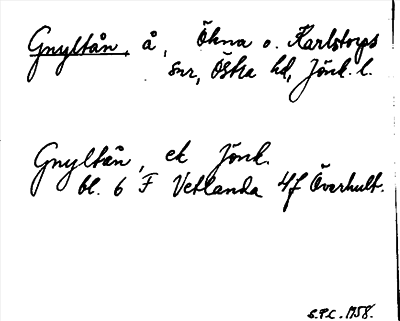 Gnyltån, å, Ökna o. Karlstorps
snr, Östra hd, Jönk. l.
Gnyltån, ek Jönk.
bl. 6 F Vetlanda 4f Överhult.
S.P.C. 1958.